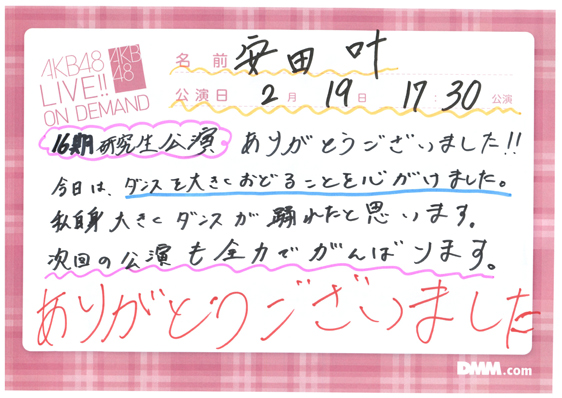 AKB48
LIVE!!
ON DEMAND
AKB
48
名 前 安田 叶
公演日 2月 19日 17:30 公演
16期研究生公演 ありがとうございました!!
今日は、ダンスを大きくおどることを心がけました。
私自身大きくダンスが踊れたと思います。
次回の公演も全力でがんばります。
ありがとうございました
DMM.com